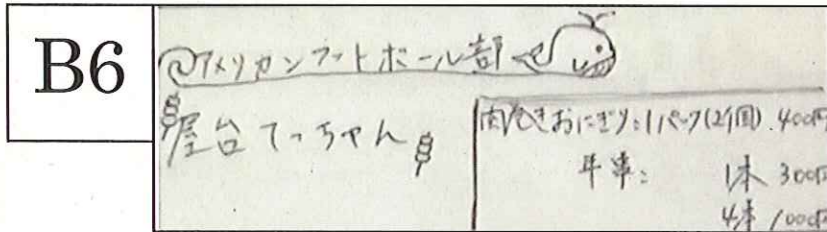 B6
アメリカンフットボール部
屋台てっちゃん
肉巻きおにぎり:1パック(2個).400円
牛串: 1本 300円
4本 1000円